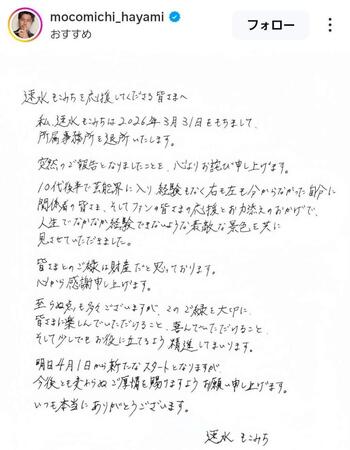 mocomichi_hayami
おすすめ
フォロー
速水もこみちを応援してくださる皆さまへ
私、速水もこみちは2026年3月31日をもちまして、
所属事務所を退所いたします。
突然のご報告となりましたことを、心よりお詫び申し上げます。
10代後半で芸能界に入り経験もなく右も左も分からなかった自分に
関係者の皆さま、そしてファンの皆さまの応援とお力添えのおかげで、
人生でなかなか経験できないような素敵な景色を共に
見させていただきました。
皆さまとのご縁は財産だと思っております。
心から感謝申し上げます。
至らぬ点も多くございますが、このご縁を大切に、
皆さまに楽しんでいただけること、喜んでいただけること、
そして少しでもお役に立てるよう精進してまいります。
明日4月1日から新たなスタートとなりますが
今後とも変わらぬご厚情を賜りますようお願い申し上げます。
いつも本当にありがとうございます。
速水もこみち